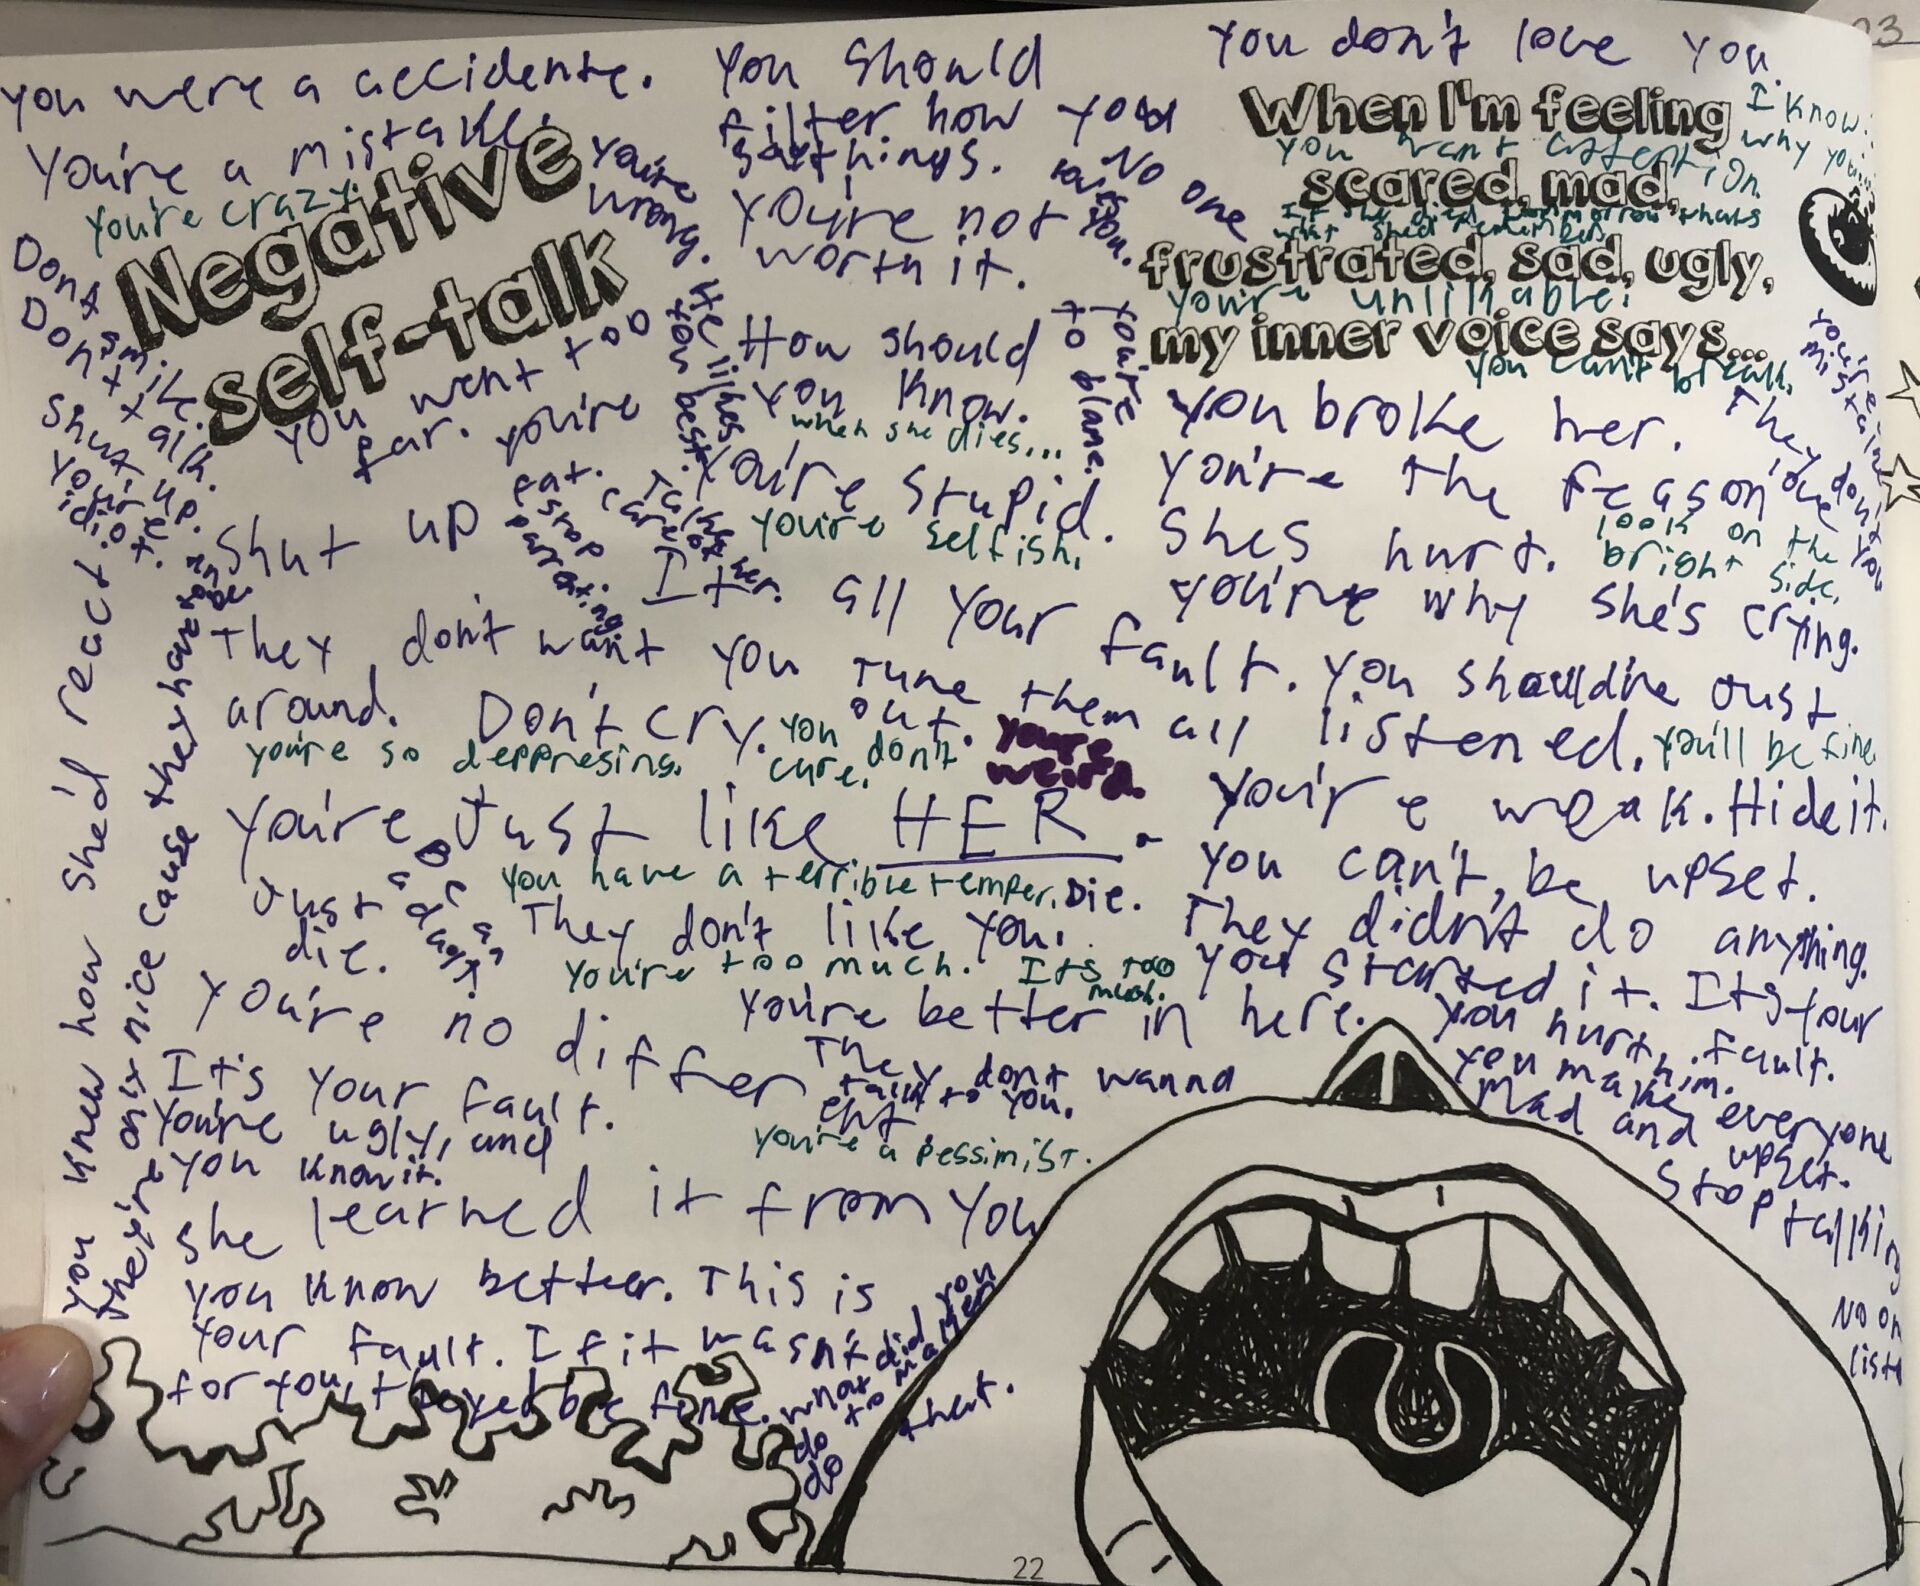 You were a accidente.
You're a mistake.
You're crazy.
Negative
self-talk
Don't smile.
Don't talk.
Shut up.
You're
idiot.
You went too
far. You're
fat.
stop
parroting
You're
wrong.
He likes
you best.
Talk
her.
You should
filter how you
say things.
You're not
worth it.
No one
loves
you.
You're
to blame.
How should
you know.
when she dies...
You're stupid.
You're selfish.
You don't love you.
I know.
why you...
When I'm feeling
You want attention.
scared, mad,
frustrated, sad, ugly,
You're unlikable.
my inner voice says...
You can't break.
You broke her.
You're the reason
She's hurt.
They don't
love you
look on the
bright side.
You're why she's crying.
Shut up
They don't want you
around. Don't cry.
It all your fault.
Tune them all
out.
You should've just
listened. You'll be fine
You're so deppresing.
You don't
care.
You're
weird.
You're Just like HER.
You're weak. Hide it.
You have a terrible temper. Die.
You can't be upset.
Just
die.
They don't like you.
They didn't do anything.
You're too much. It's too
much.
You started it. It's your
fault.
You're no different.
You're better in here.
You hurt him.
You make everyone
mad and
upset.
Stop talking
No on
liste
They don't wanna
talk to you.
It's your fault.
You're ugly, and
you know it.
You're a pessimist.
She learned it from you
You know better. This is
your fault. If it wasn't
for you, they'd be fine.
what did you
do to make her
do
that.
You knew how she'd react.
They're only nice cause they have to be.
22